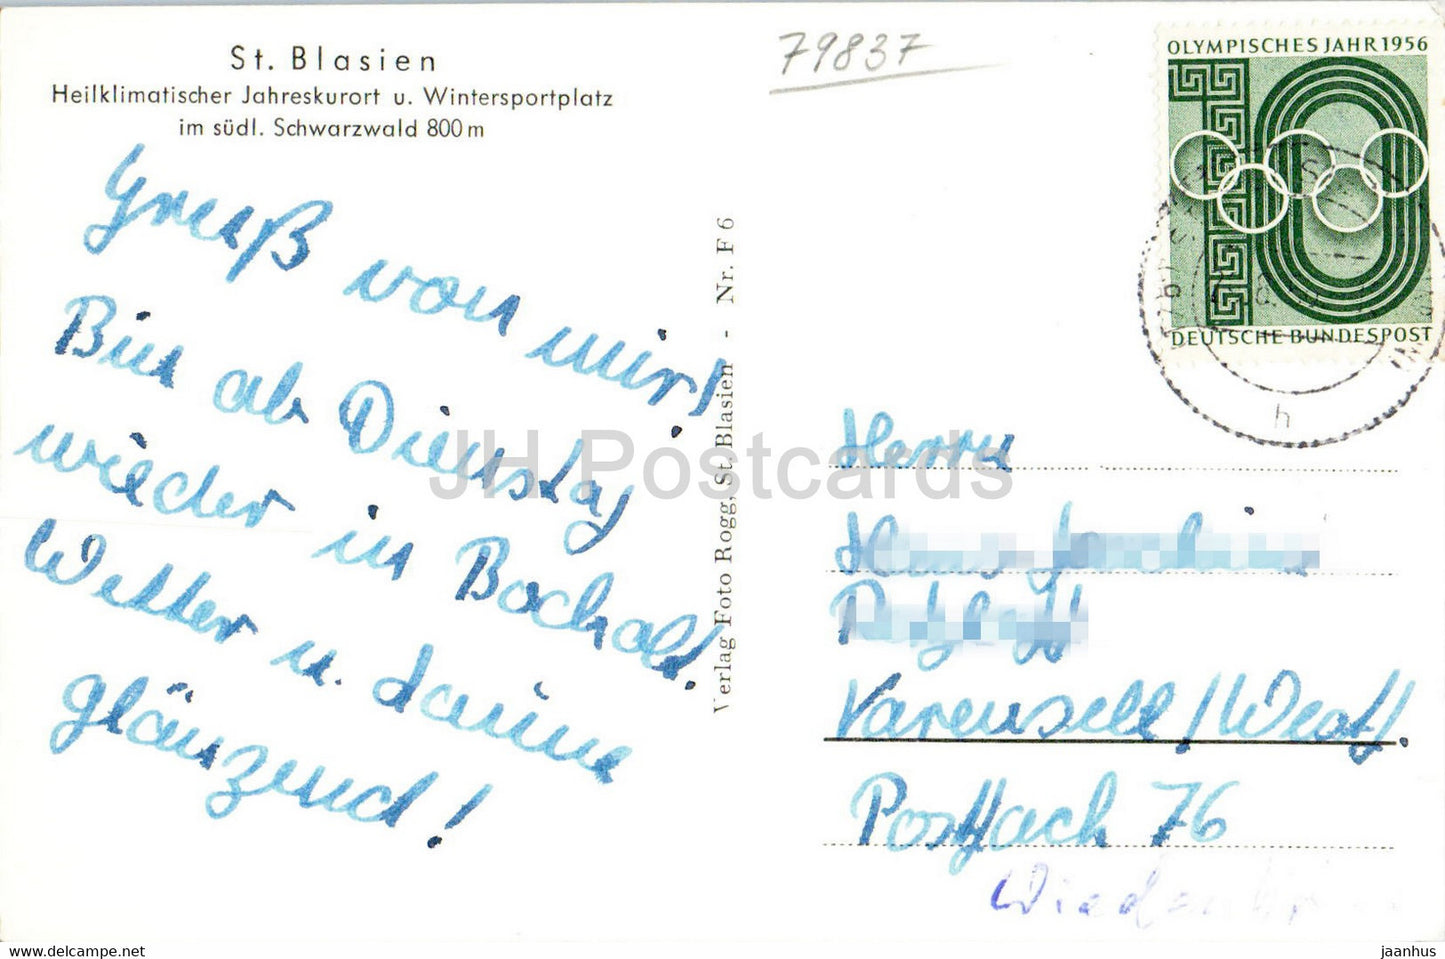 St. Blasien
Heilklimatischer Jahreskurort u. Wintersportplatz
im südl. Schwarzwald 800 m
Gruß von mir!
Bin ab Dienstag
wieder in Bocholt.
Wetter u. Laune
glänzend!
Verlag Foto Rogg, St. Blasien - Nr. F 6
79837
OLYMPISCHES JAHR 1956
DEUTSCHE BUNDESPOST
h
Herrn
Varensell/Westf.
Postfach 76
JH Postcards
www.hippostcard.com
jaanhus